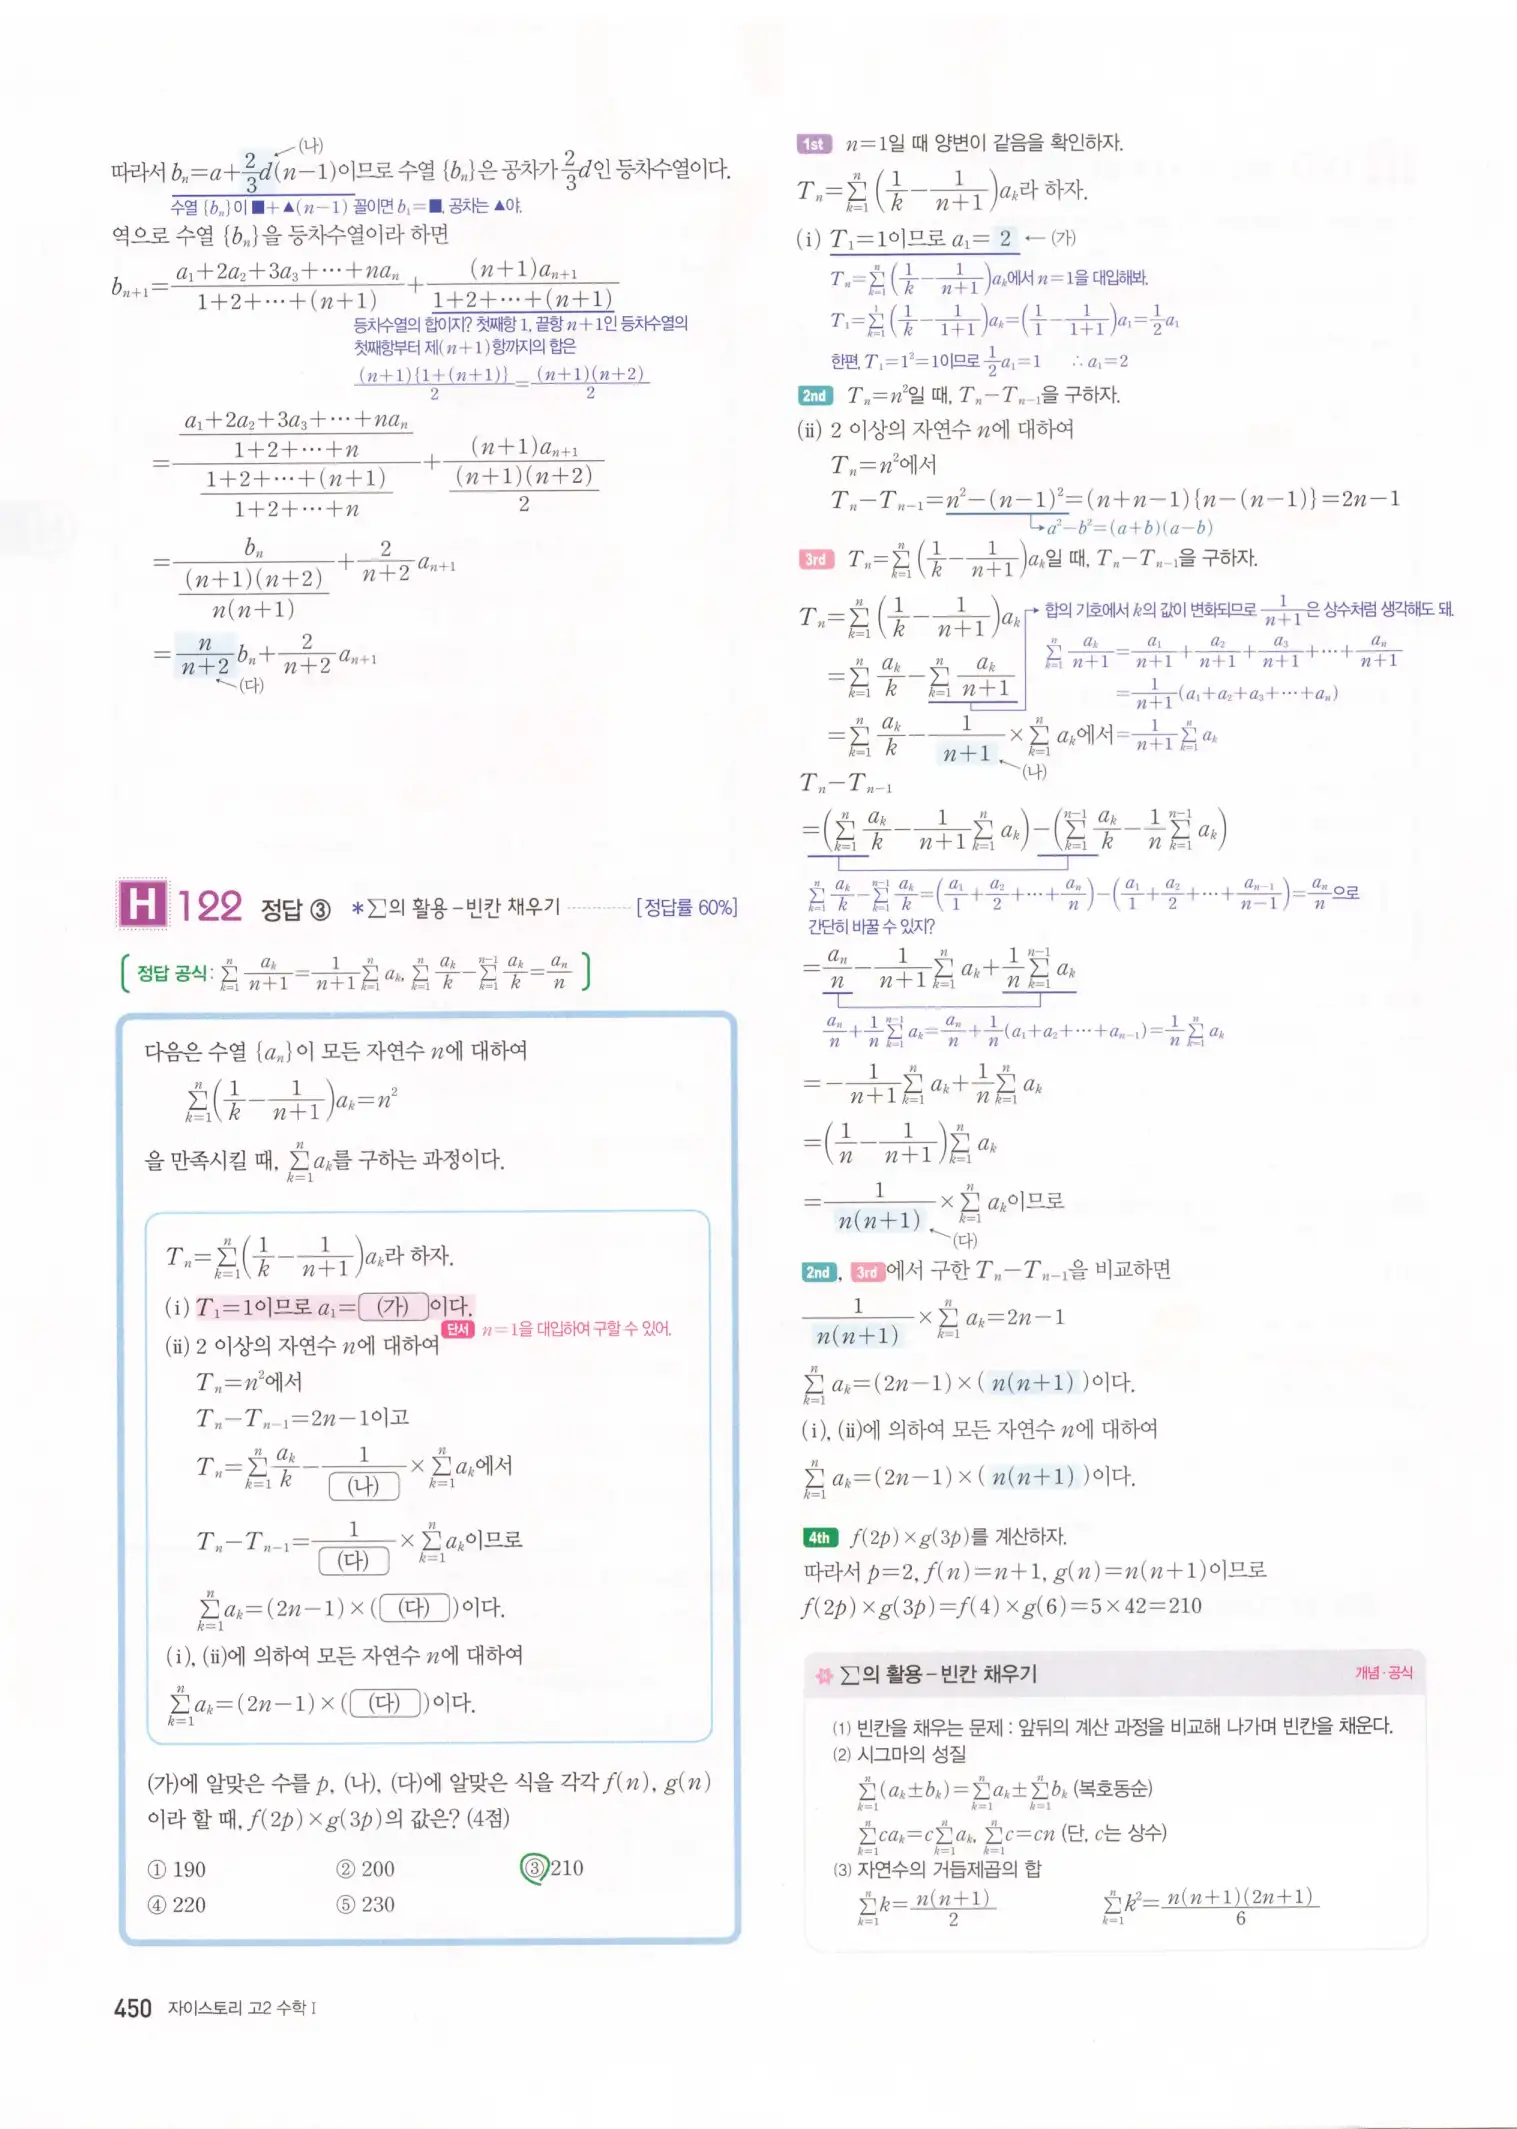 따라서 bₙ=a+2/3d(n-1)이므로 수열 {bₙ}은 공차가 2/3d인 등차수열이다.
(나)
수열 {bₙ}이 ■+▲(n-1) 꼴이면 b₁=■, 공차는 ▲야.
역으로 수열 {bₙ}을 등차수열이라 하면
bₙ₊₁=(a₁+2a₂+3a₃+⋯+naₙ)/(1+2+⋯+(n+1))+((n+1)aₙ₊₁)/(1+2+⋯+(n+1))
등차수열의 합이지? 첫째항 1, 끝항 n+1인 등차수열의
첫째항부터 제(n+1)항까지의 합은
(n+1){1+(n+1)}/2=(n+1)(n+2)/2
=((a₁+2a₂+3a₃+⋯+naₙ)/(1+2+⋯+n))/((1+2+⋯+(n+1))/(1+2+⋯+n))+((n+1)aₙ₊₁)/((n+1)(n+2)/2)
=bₙ/((n+1)(n+2)/n(n+1))+2/(n+2)aₙ₊₁
=n/(n+2)bₙ+2/(n+2)aₙ₊₁
(다)
H 122 정답 ③ *∑의 활용-빈칸 채우기 [정답률 60%]
정답 공식: ∑_{k=1}^{n} aₖ/(n+1)=1/(n+1)∑_{k=1}^{n} aₖ, ∑_{k=1}^{n} aₖ/k-∑_{k=1}^{n-1} aₖ/k=aₙ/n
다음은 수열 {aₙ}이 모든 자연수 n에 대하여
∑_{k=1}^{n}(1/k-1/(n+1))aₖ=n²
을 만족시킬 때, ∑_{k=1}^{n} aₖ를 구하는 과정이다.
Tₙ=∑_{k=1}^{n}(1/k-1/(n+1))aₖ라 하자.
(i) T₁=1이므로 a₁=(가)이다.
단서 n=1을 대입하여 구할 수 있어.
(ii) 2 이상의 자연수 n에 대하여
Tₙ=n²에서
Tₙ-Tₙ₋₁=2n-1이고
Tₙ=∑_{k=1}^{n} aₖ/k-1/(나)×∑_{k=1}^{n} aₖ에서
Tₙ-Tₙ₋₁=1/(다)×∑_{k=1}^{n} aₖ이므로
∑_{k=1}^{n} aₖ=(2n-1)×((다))이다.
(i), (ii)에 의하여 모든 자연수 n에 대하여
∑_{k=1}^{n} aₖ=(2n-1)×((다))이다.
(가)에 알맞은 수를 p, (나), (다)에 알맞은 식을 각각 f(n), g(n)
이라 할 때, f(2p)×g(3p)의 값은? (4점)
① 190 ② 200 ③ 210
④ 220 ⑤ 230
450 자이스토리 고2 수학 I
1st n=1일 때 양변이 같음을 확인하자.
Tₙ=∑_{k=1}^{n}(1/k-1/(n+1))aₖ라 하자.
(i) T₁=1이므로 a₁= 2 ←(가)
Tₙ=∑_{k=1}^{n}(1/k-1/(n+1))aₖ에서 n=1을 대입해봐.
T₁=∑_{k=1}^{1}(1/k-1/(1+1))aₖ=(1/1-1/(1+1))a₁=1/2a₁
한편, T₁=1²=1이므로 1/2a₁=1 ∴ a₁=2
2nd Tₙ=n²일 때, Tₙ-Tₙ₋₁을 구하자.
(ii) 2 이상의 자연수 n에 대하여
Tₙ=n²에서
Tₙ-Tₙ₋₁=n²-(n-1)²=(n+n-1){n-(n-1)}=2n-1
a²-b²=(a+b)(a-b)
3rd Tₙ=∑_{k=1}^{n}(1/k-1/(n+1))aₖ일 때, Tₙ-Tₙ₋₁을 구하자.
Tₙ=∑_{k=1}^{n}(1/k-1/(n+1))aₖ
합의 기호에서 k의 값이 변화되므로 1/(n+1)은 상수처럼 생각해도 돼.
∑_{k=1}^{n} aₖ/(n+1)=a₁/(n+1)+a₂/(n+1)+a₃/(n+1)+⋯+aₙ/(n+1)
=∑_{k=1}^{n} aₖ/k-∑_{k=1}^{n} aₖ/(n+1)
=1/(n+1)(a₁+a₂+a₃+⋯+aₙ)
=∑_{k=1}^{n} aₖ/k-1/(n+1)×∑_{k=1}^{n} aₖ에서
=1/(n+1)∑_{k=1}^{n} aₖ
(나)
Tₙ-Tₙ₋₁
=(∑_{k=1}^{n} aₖ/k-1/(n+1)∑_{k=1}^{n} aₖ)-(∑_{k=1}^{n-1} aₖ/k-1/n∑_{k=1}^{n-1} aₖ)
∑_{k=1}^{n} aₖ/k-∑_{k=1}^{n-1} aₖ/k=(a₁/1+a₂/2+⋯+aₙ/n)-(a₁/1+a₂/2+⋯+aₙ₋₁/(n-1))=aₙ/n으로
간단히 바꿀 수 있지?
=aₙ/n-1/(n+1)∑_{k=1}^{n} aₖ+1/n∑_{k=1}^{n-1} aₖ
aₙ/n+1/n∑_{k=1}^{n-1} aₖ=aₙ/n+1/n(a₁+a₂+⋯+aₙ₋₁)=1/n∑_{k=1}^{n} aₖ
=-1/(n+1)∑_{k=1}^{n} aₖ+1/n∑_{k=1}^{n} aₖ
=(1/n-1/(n+1))∑_{k=1}^{n} aₖ
=1/(n(n+1))×∑_{k=1}^{n} aₖ이므로
(다)
2nd, 3rd에서 구한 Tₙ-Tₙ₋₁을 비교하면
1/(n(n+1))×∑_{k=1}^{n} aₖ=2n-1
∑_{k=1}^{n} aₖ=(2n-1)×( n(n+1) )이다.
(i), (ii)에 의하여 모든 자연수 n에 대하여
∑_{k=1}^{n} aₖ=(2n-1)×( n(n+1) )이다.
4th f(2p)×g(3p)를 계산하자.
따라서 p=2, f(n)=n+1, g(n)=n(n+1)이므로
f(2p)×g(3p)=f(4)×g(6)=5×42=210
∑의 활용-빈칸 채우기 개념·공식
(1) 빈칸을 채우는 문제 : 앞뒤의 계산 과정을 비교해 나가며 빈칸을 채운다.
(2) 시그마의 성질
∑_{k=1}^{n}(aₖ±bₖ)=∑_{k=1}^{n} aₖ±∑_{k=1}^{n} bₖ (복호동순)
∑_{k=1}^{n} caₖ=c∑_{k=1}^{n} aₖ, ∑_{k=1}^{n} c=cn (단, c는 상수)
(3) 자연수의 거듭제곱의 합
∑_{k=1}^{n} k=n(n+1)/2 ∑_{k=1}^{n} k²=n(n+1)(2n+1)/6